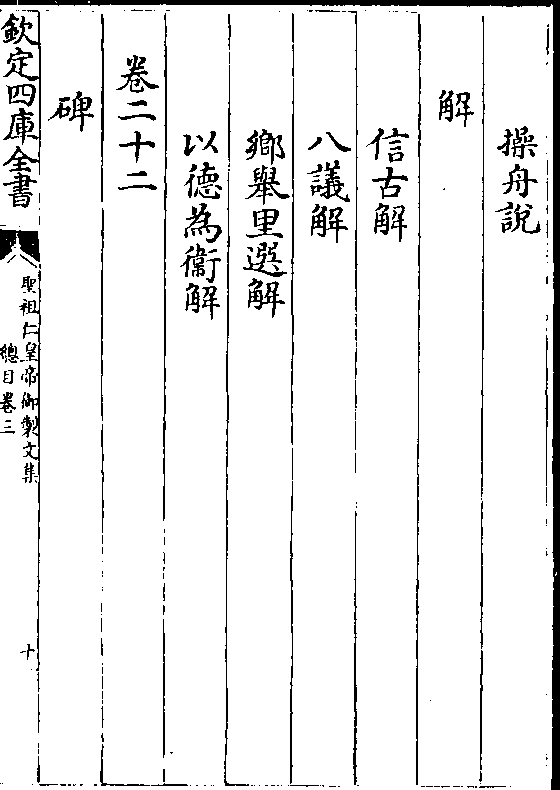 操舟說
解
信古解
八議解
鄉舉里選解
以德為衛解
卷二十二
碑
欽定四庫全書
聖祖仁皇帝御製文集
總目卷三
十